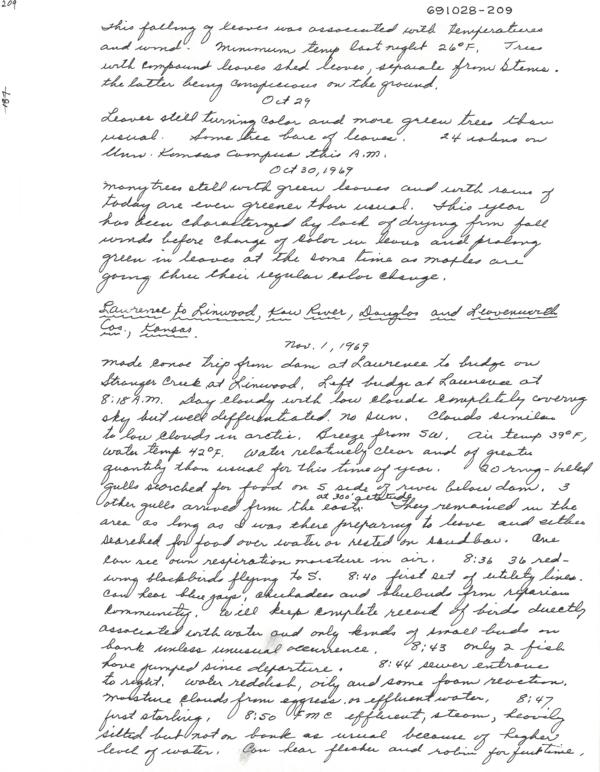 209
691028-209
187
This falling of leaves was associated with temperatures
and wind. Minimum temp last night 26°F. Trees
with compound leaves shed leaves, separate from stems.
the latter being conspicuous on the ground.
Oct 29
Leaves still turning color and more green trees than
usual. Some tree bare of leaves. 24 robins on
Univ. Kansas Campus this A.M.
Oct 30, 1969
Many trees still with green leaves and with rains of
today are even greener than usual. This year
has been characterized by lack of drying from fall
winds before change of color in leaves and prolong
green in leaves at the same time as maples are
going thru their regular color change.
Lawrence to Linwood, Kaw River, Douglas and Leavenworth
Cos., Kansas.
Nov. 1, 1969
Made canoe trip from dam at Lawrence to bridge on
Stranger Creek at Linwood. Left bridge at Lawrence at
8:18 A.M. Day cloudy with low clouds completely covering
sky but well differentiated. No sun. Clouds similar
to low clouds in arctic. Breeze from SW. Air temp 39°F,
water temp 42°F. Water relatively clear and of greater
quantity than usual for this time of year. 20 ring-billed
gulls searched for food on S side of river below dam. 3
other gulls arrived from the east at 300' altitude. They remained in the
area as long as I was there preparing to leave and either
searched for food over water or rested on sandbar. One
can see own respiration moisture in air. 8:36 36 red-
wing blackbirds flying to S. 8:40 first set of utility lines.
Can hear blue jays, chickadees and bluebirds from riparian
community. Will keep complete record of birds directly
associated with water and only kinds of small birds on
bank unless unusual occurrence. 8:43 only 2 fish
have jumped since departure. 8:44 sewer entrance
to right. Water reddish, oily and some foam reaction.
Moisture clouds from egress or effluent water. 8:47
first starling. 8:50 FMC effluent, steam, heavily
silted but not on bank as usual because of higher
level of water. Can hear flicker and robin for first time.